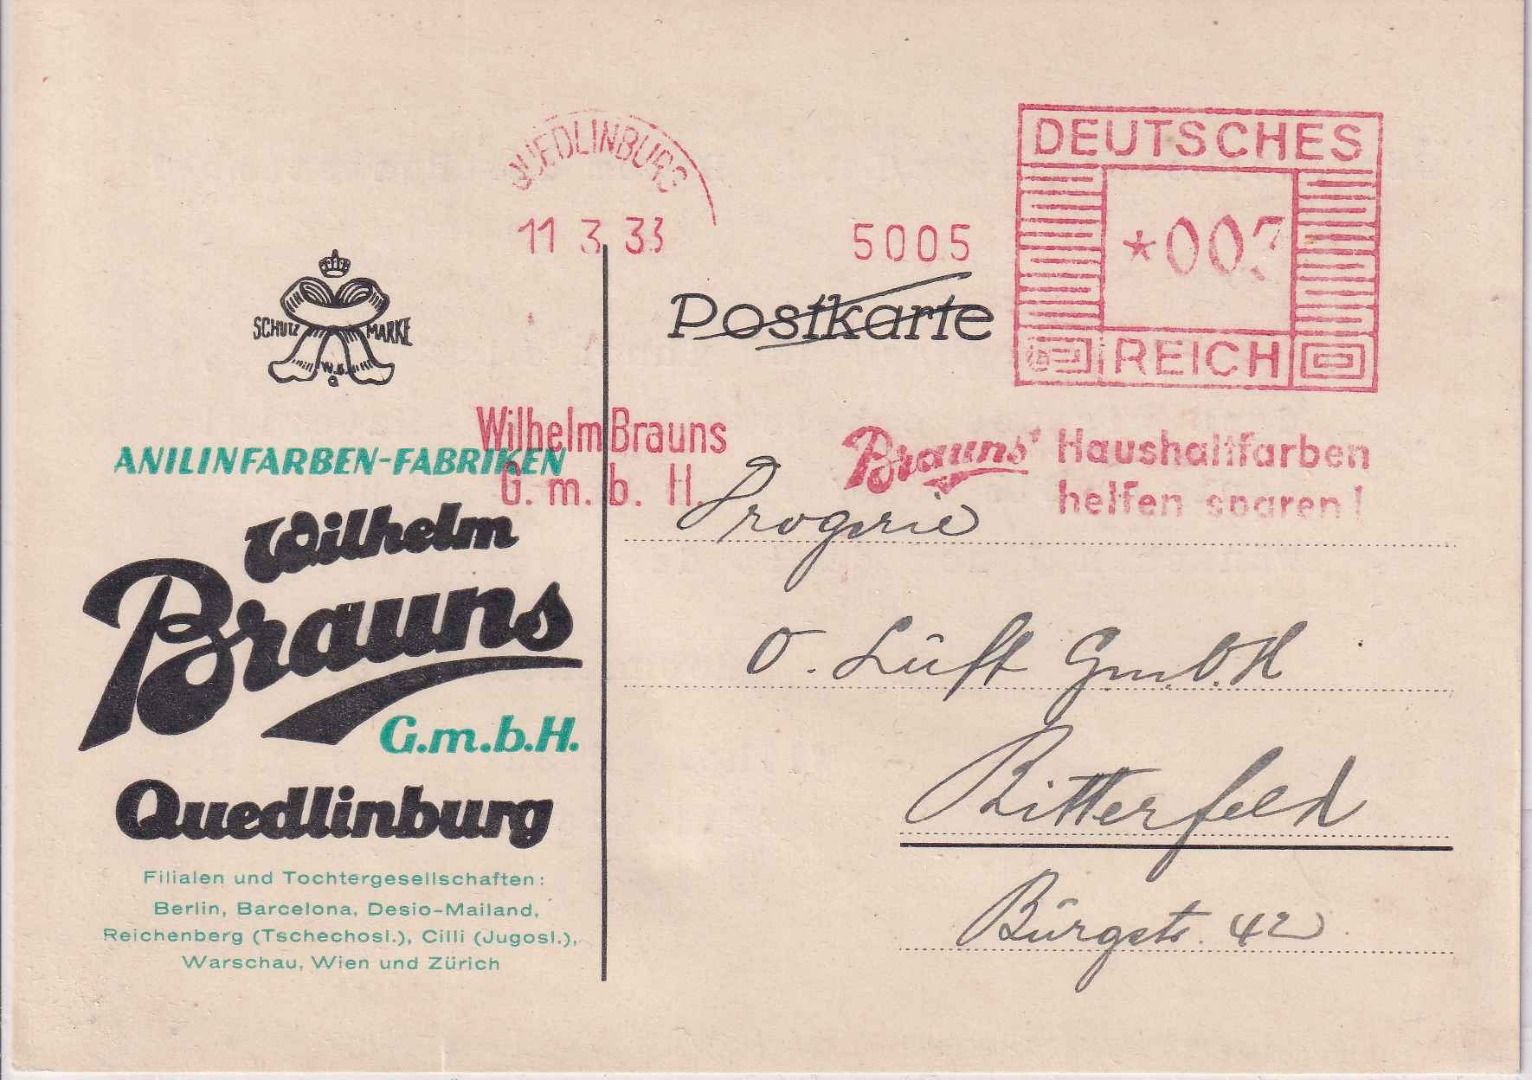 QUEDLINBURG
11 3. 33
5005
DEUTSCHES
*003
REICH
Postkarte
SCHUTZ MARKE
W.B.
Q
Wilhelm Brauns
G. m. b. H.
Brauns' Haushaltfarben
helfen sparen!
ANILINFARBEN-FABRIKEN
Wilhelm
Brauns
G.m.b.H.
Quedlinburg
Filialen und Tochtergesellschaften:
Berlin, Barcelona, Desio-Mailand,
Reichenberg (Tschechosl.), Cilli (Jugosl.),
Warschau, Wien und Zürich
Drogerie
O. Luft GmbH
Bitterfeld
Burgstr. 42